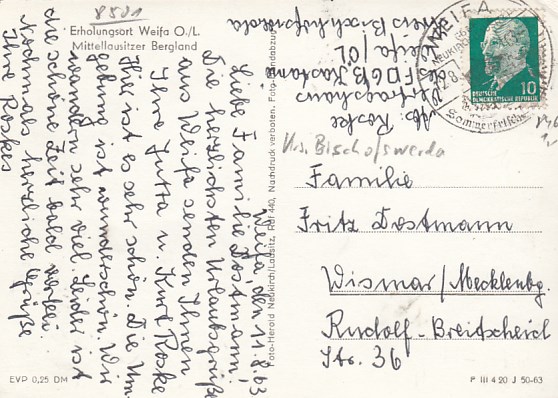 8501
Erholungsort Weifa O./L.
Mittellausitzer Bergland
Weifa, den 11.8.63
Liebe Familie Dostmann!
Die herzlichsten Urlaubsgrüße
aus Weifa senden Ihnen
Ihre Jutta u. Kurt Roske
Hier ist es sehr schön. Die Um-
gebung ist wunderschön. Wir
wandern sehr viel. Leider ist
die schöne Zeit bald vorbei.
Nochmals herzliche Grüße
Ihre Roskes
Abs. Roske
Vertragshaus
des FDGB
Weifa/OL
Kreis Bischofswerda
Foto-Herold Neukirch/Lausitz, Ruf 440, Nachdruck verboten, Foto-Handabzug
WEIFA
Sommerfrische
DEUTSCHE
DEMOKRATISCHE REPUBLIK
10
Krs. Bischofswerda
Familie
Fritz Dostmann
Wismar/Mecklenbg.
Rudolf-Breitscheid
Str. 36
EVP 0,25 DM
P III 4 20 J 50-63